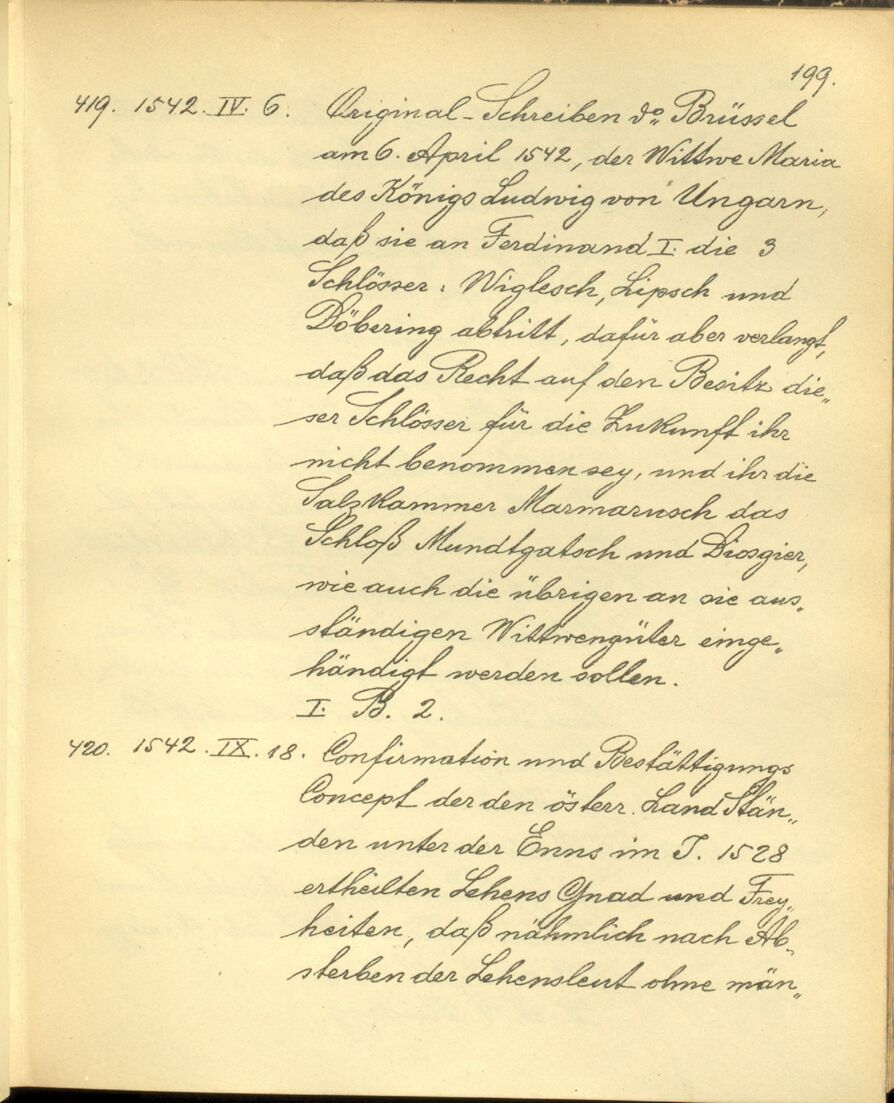 199.
419. 1542. IV. 6. Original-Schreiben do. Brüssel
am 6. April 1542, der Wittwe Maria
des Königs Ludwig von Ungarn,
daß sie an Ferdinand I. die 3
Schlösser: Wiglesch, Lipsch und
Döbering abtritt, dafür aber verlangt,
daß das Recht auf den Besitz die„
ser Schlösser für die Zukunft ihr
nicht benommen sey, und ihr die
Salzkammer Marmarusch das
Schloß Mundtgatsch und Diosgier,
wie auch die übrigen an sie aus„
ständigen Wittwengüter einge„
händigt werden sollen.
I. B. 2.
420. 1542. IX. 18. Confirmation und Bestättigungs
Concept der den österr. Land Stän„
den unter der Enns im J. 1528
ertheilten Lehens Gnad und Frey„
heiten, daß nähmlich nach Ab„
sterben der Lehensleut ohne män„